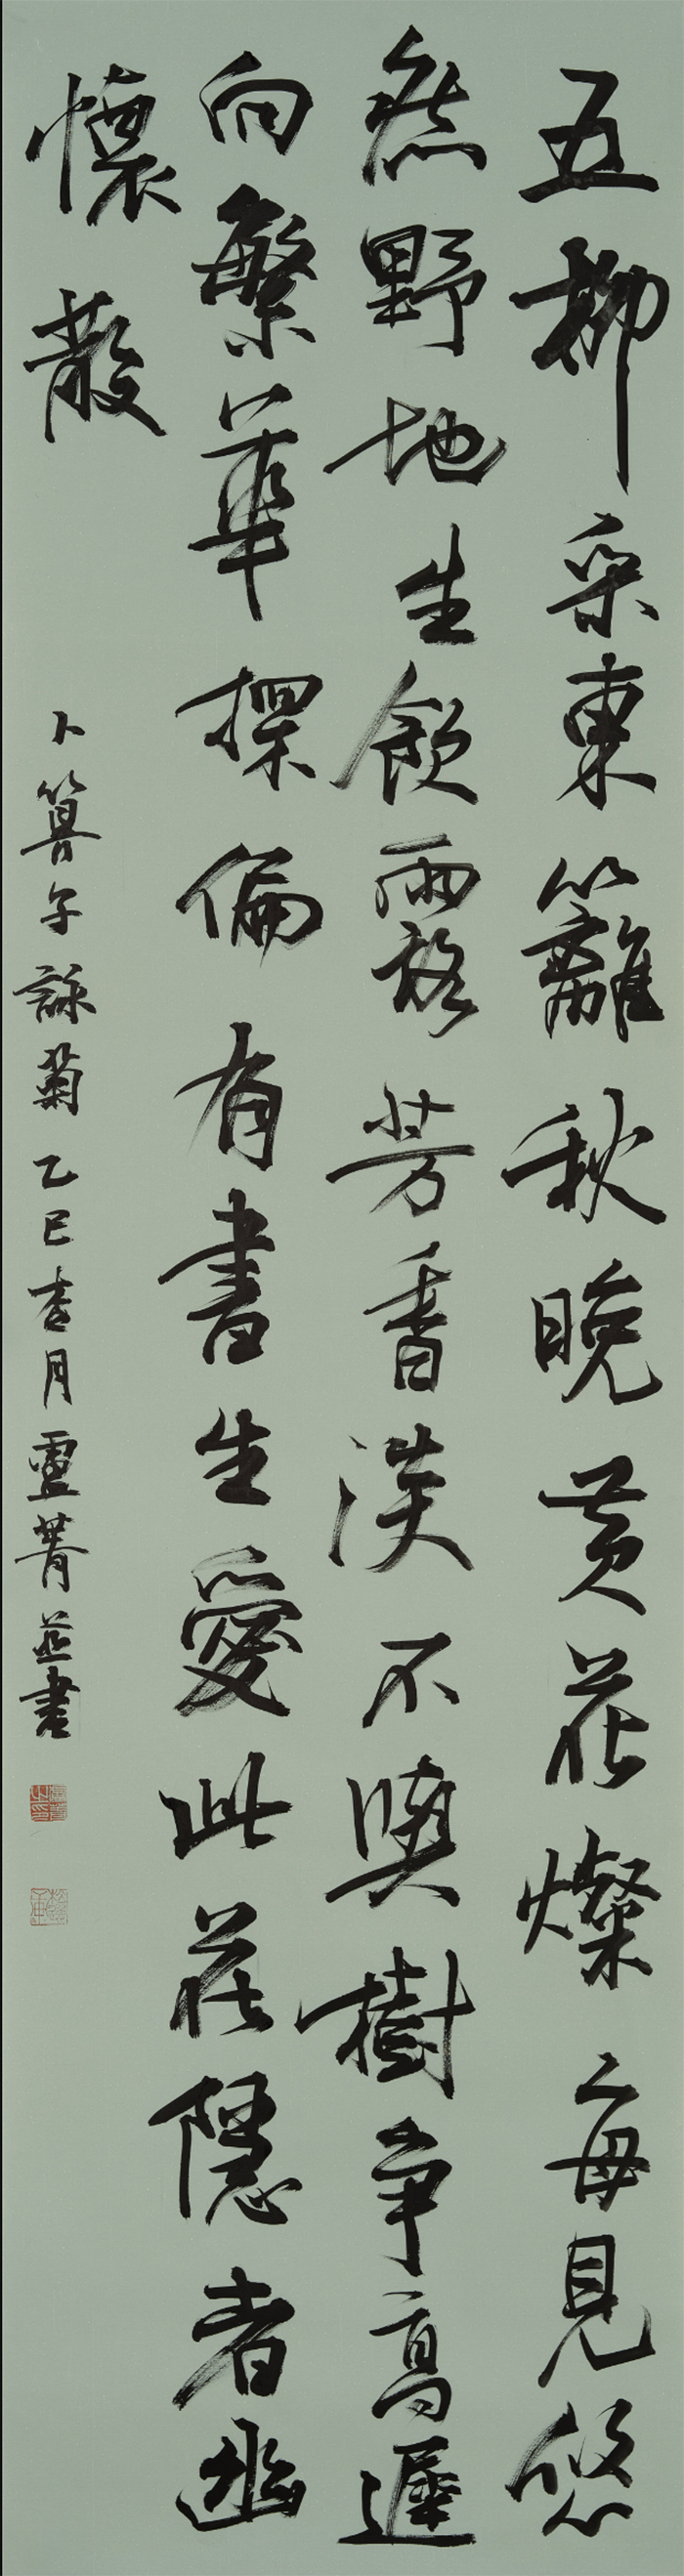 五柳采東籬秋晚黃花燦每見悠
然野地生飲露芳香淡不與樹爭高遲
向繁華探偏有書生愛此花隱者幽
懷散
卜算子詠菊乙巳吉月盧菁並書